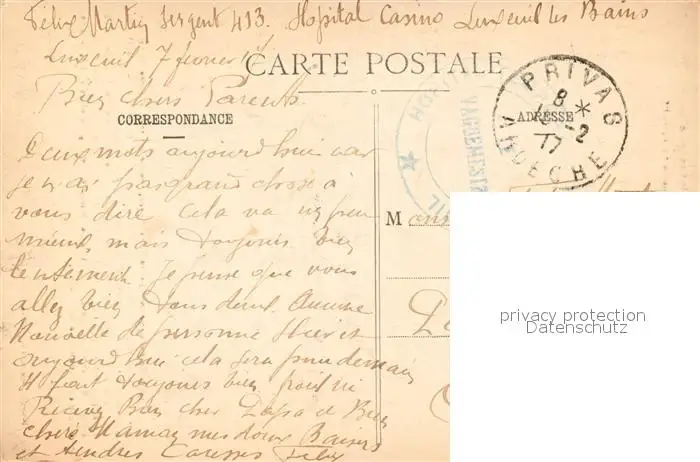 Félix Martin Sergent 413. Hopital Casino Luxeuil les Bains
Luxeuil 7 février
CARTE POSTALE
Bien chers Parents
CORRESPONDANCE
ADRESSE
PRIVAS
8
ARDECHE
Deux mots aujourd'hui car
je n'ai pas grand chose à
vous dire Cela va un peu
mieux, mais toujours bien
lentement. Je pense que vous
allez bien tous deux. Aucune
Nouvelle de personne hier et
aujourd'hui cela sera pour demain
Il fait toujours bien froid ici
Bien cher Papa et Bien
chère Maman mes doux Baisers
et tendres Caresses Félix
M
privacy protection
Datenschutz